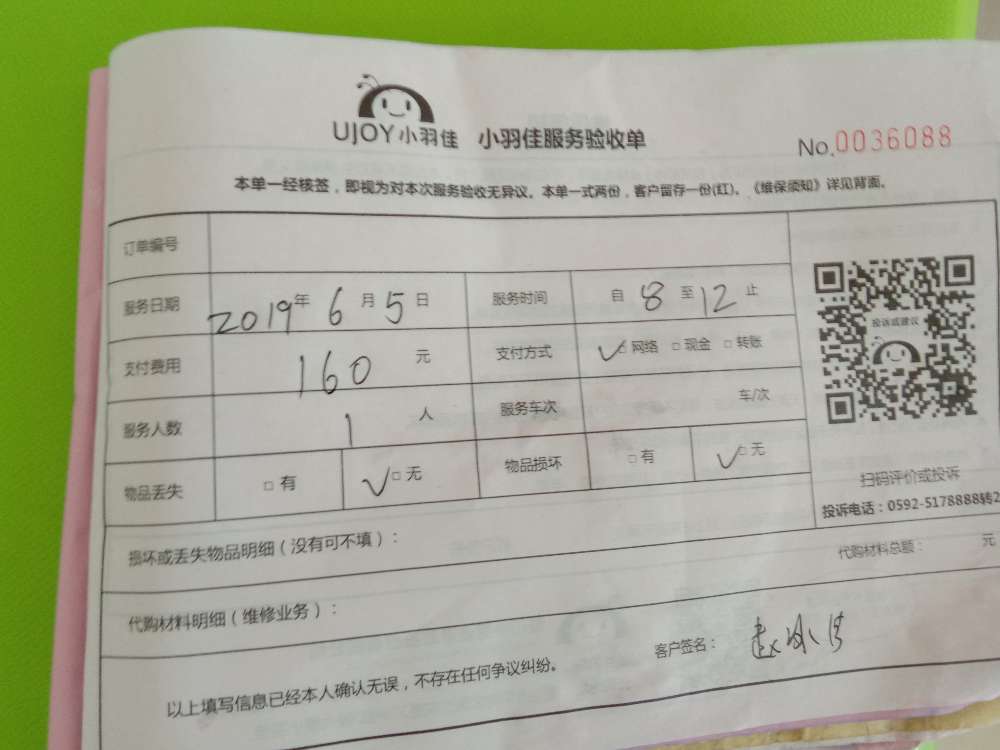 UJOY小羽佳 小羽佳服务验收单 No.0036088
本单一经核签，即视为对本次服务验收无异议。本单一式两份，客户留存一份(红)。《维保须知》详见背面。
订单编号
服务日期 2019年6月5日 服务时间 自8至12止
支付费用 160元 支付方式 ✓□网络 □现金 □转账
投诉或建议
服务人数 1人 服务车次 车/次
物品丢失 □有 ✓□无 物品损坏 □有 ✓□无
扫码评价或投诉
投诉电话：0592-5178888转2
损坏或丢失物品明细（没有可不填）：
代购材料明细（维修业务）： 代购材料总额： 元
以上填写信息已经本人确认无误，不存在任何争议纠纷。 客户签名：赵